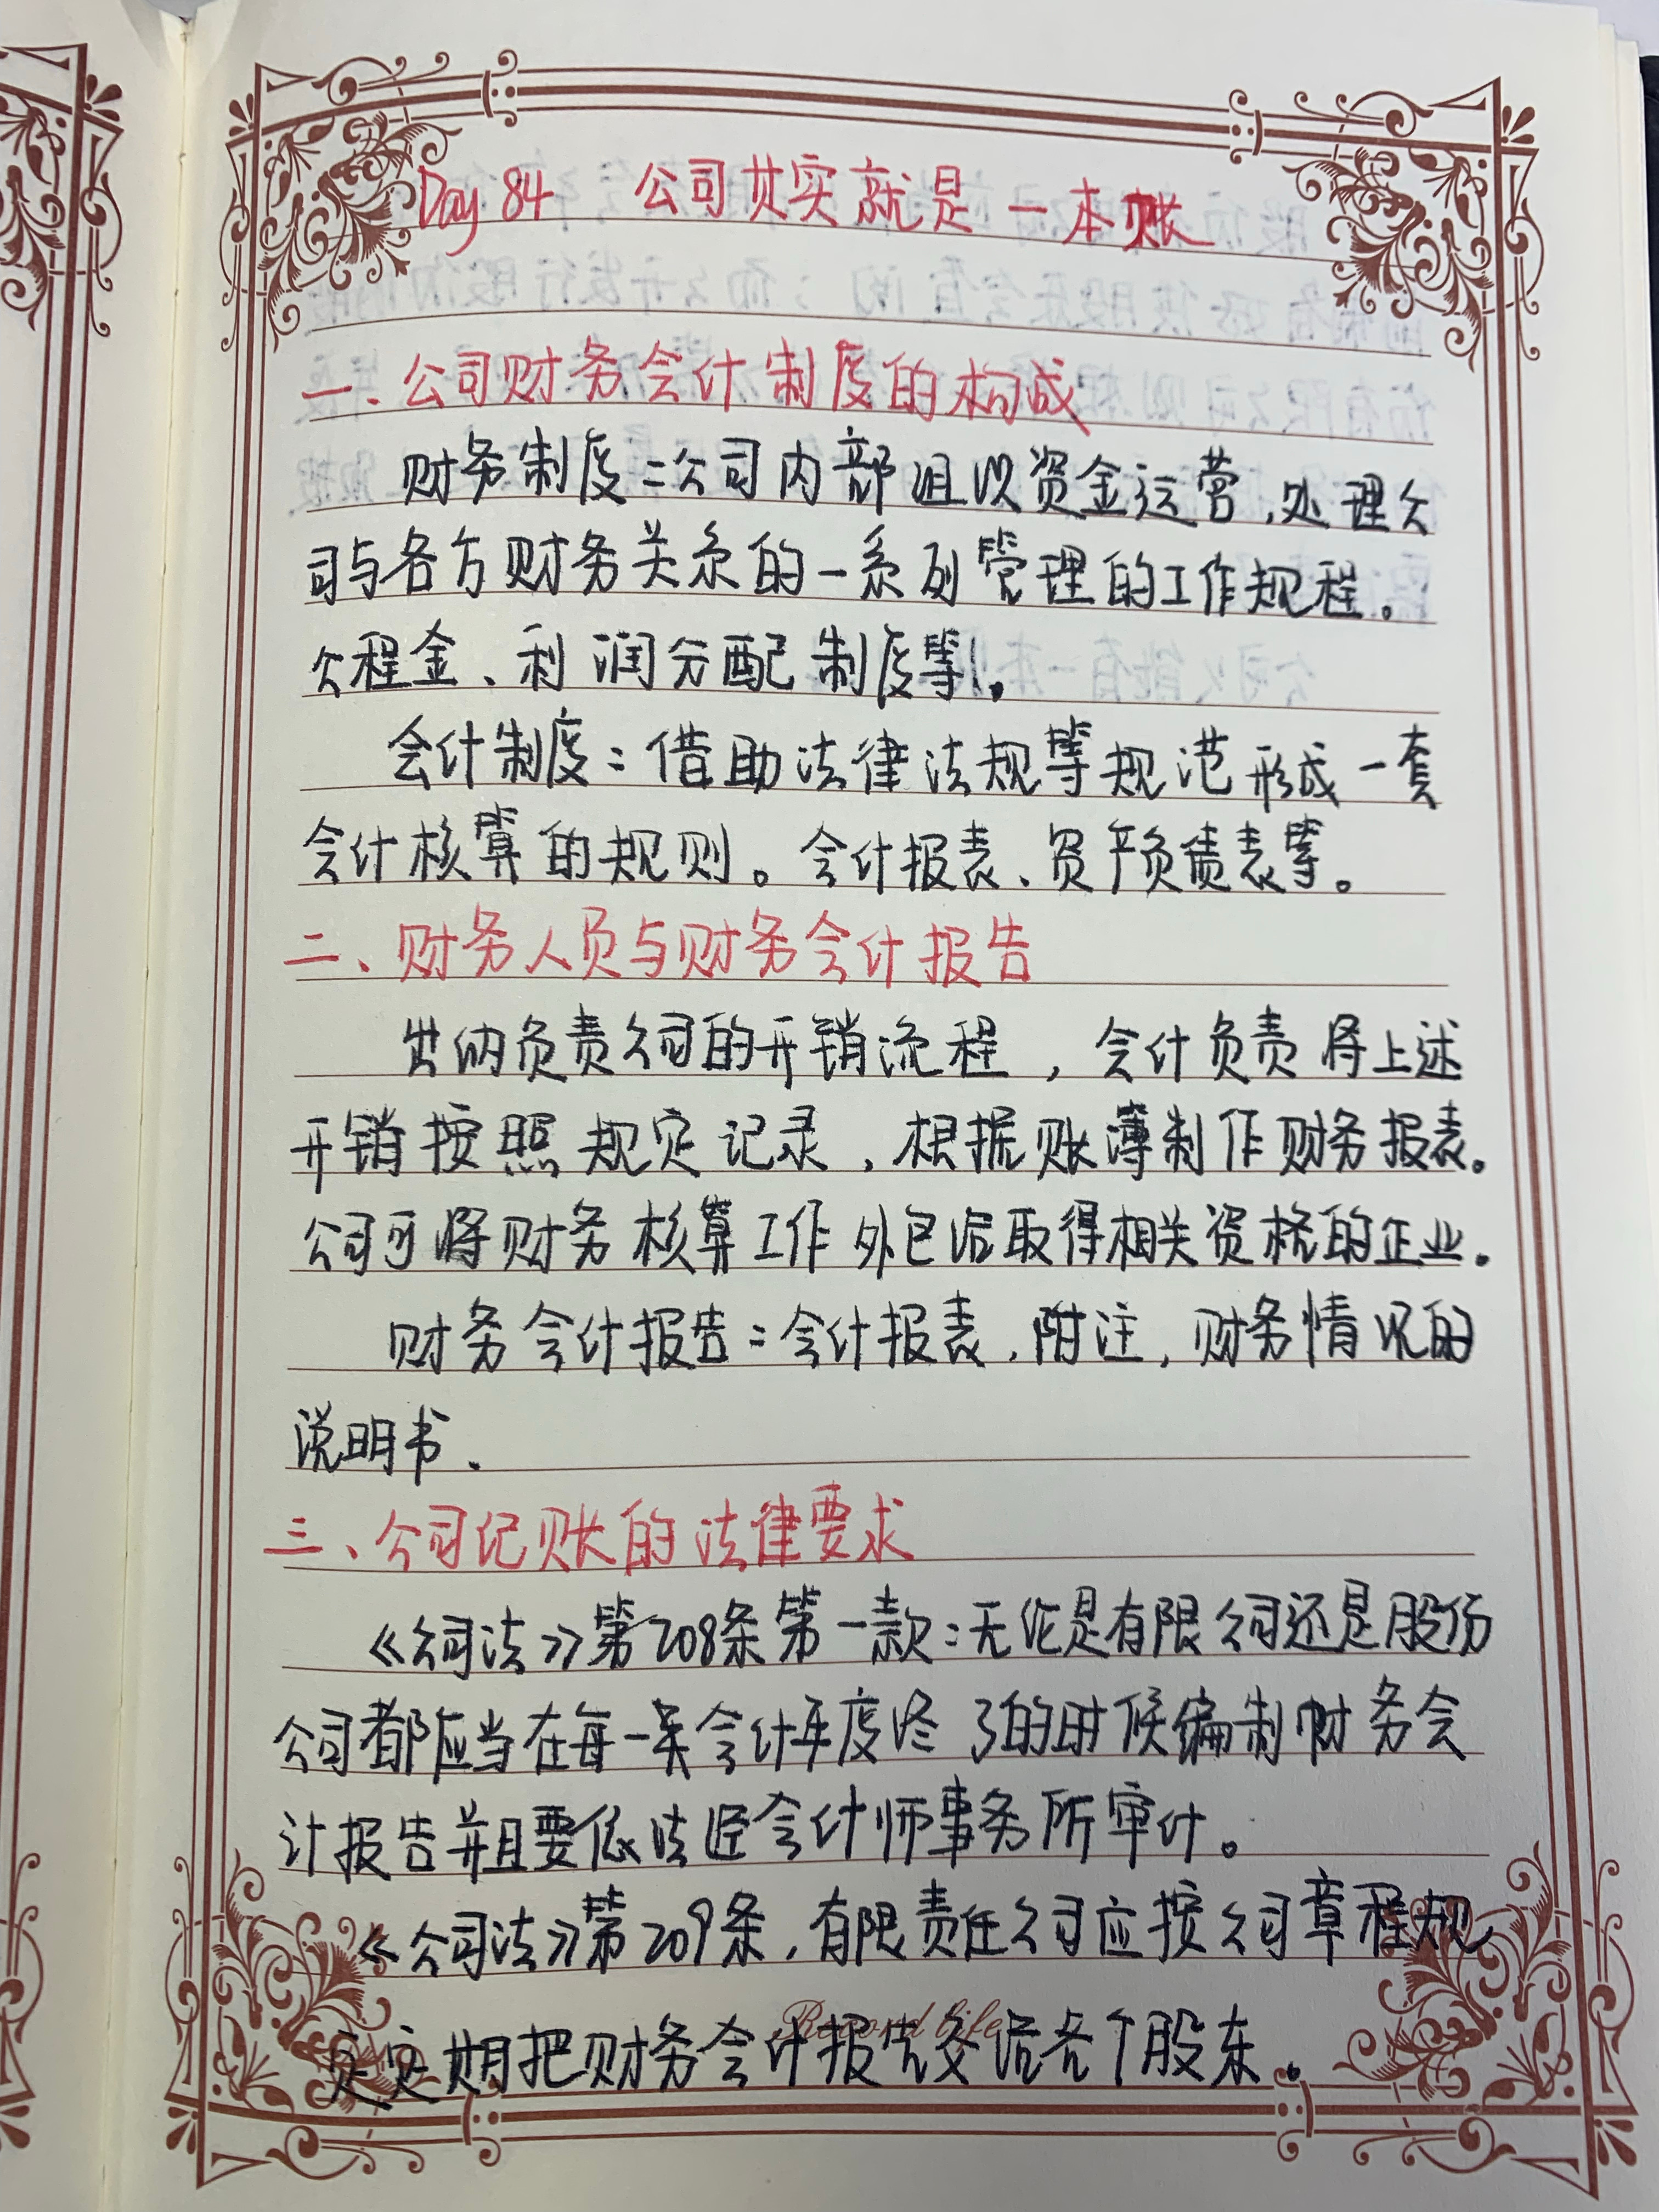 Day 84 公司其实就是一本账
一、公司财务会计制度的构成
财务制度：公司内部组织资金运营，处理公
司与各方财务关系的一系列管理的工作规程。
公积金、利润分配制度等。
会计制度：借助法律法规等规范形成一套
会计核算的规则。会计报表、资产负债表等。
二、财务人员与财务会计报告
出纳负责公司的开销流程，会计负责将上述
开销按照规定记录，根据账薄制作财务报表。
公司可将财务核算工作外包给取得相关资格的企业。
财务会计报告：会计报表，附注，财务情况的
说明书、
三、公司记账的法律要求
《公司法》第208条第一款：无论是有限公司还是股份
公司都应当在每一年会计年度终了的时候编制财务会
计报告并且要依法经会计师事务所审计。
《公司法》第209条，有限责任公司应按公司章程规
定定期把财务会计报告交给各个股东。
Record life